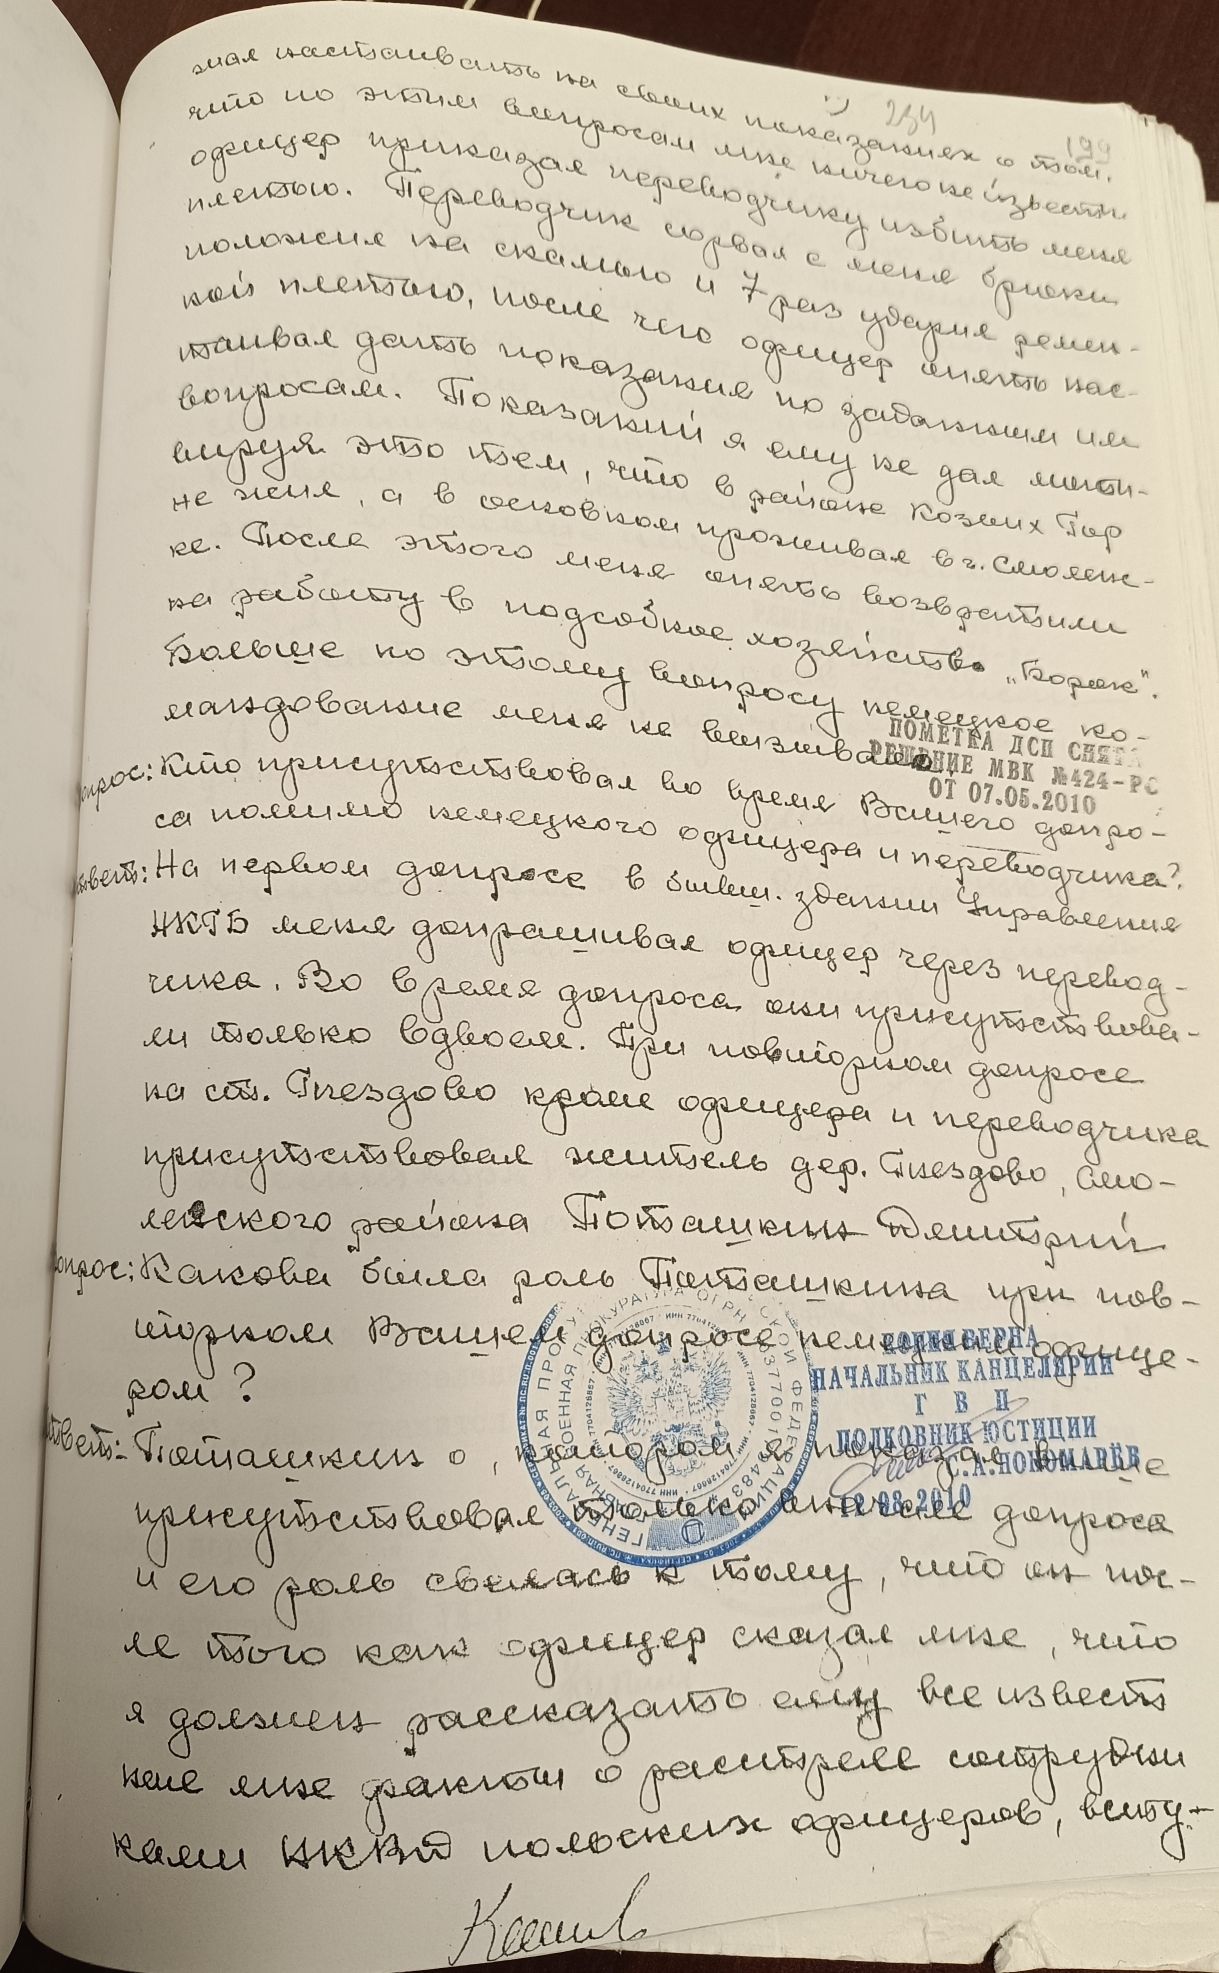 234
199
жал настаивать на своих показаниях о том,
что по этим вопросам мне ничего не известн
офицер приказал переводчику избить меня
плетью. Переводчик сорвал с меня брюки
положил на скамью и 7 раз ударил ремен-
ной плетью, после чего офицер опять нас-
таивал дать показания по заданным им
вопросам. Показаний я ему не дал моти-
вируя это тем, что в районе Козьих Гор
не жил, а в основном проживал в г. Смоленс-
ке. После этого меня опять возвратили
на работу в подсобное хозяйство „Борок".
Больше по этому вопросу немецкое ко-
мандование меня не вызывало.
ПОМЕТКА ДСП СНЯТА
РЕШЕНИЕ МВК №424-РС
ОТ 07.05.2010
опрос: Кто присутствовал во время Вашего допро-
са помимо немецкого офицера и переводчика?
твет: На первом допросе в бывш. здании Управления
НКГБ меня допрашивал офицер через перевод-
чика. Во время допроса они присутствова-
ли только вдвоем. При повторном допросе
на ст. Гнездово кроме офицера и переводчика
присутствовал житель дер. Гнездово, Смо-
ленского района Поташкин Дмитрий
опрос: Какова была роль Поташкина при пов-
торном Вашем допросе немецким офице-
ром?
твет: Поташкин о, котором я показал выше
присутствовал только вначале допроса
и его роль свелась к тому, что он пос-
ле того как офицер сказал мне, что
я должен рассказать ему все извест
ные мне факты о расстреле сотрудни
ками НКВД польских офицеров, всту-
КОПИЯ ВЕРНА
НАЧАЛЬНИК КАНЦЕЛЯРИИ
Г В П
ПОЛКОВНИК ЮСТИЦИИ
С.А.ПОНОМАРЁВ
12.08.2010